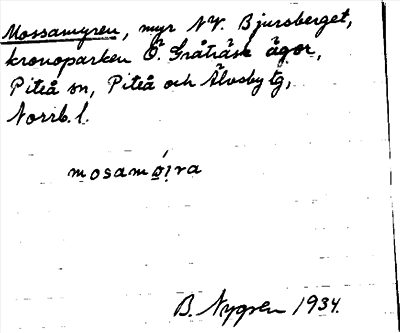 Mossamyren, myr NV. Bjursberget,
kronoparken Ö. Gråträsk ägor,
Piteå sn, Piteå och Älvsby tg,
Norrb. l.
mosamö̱i̯ra
B. Nygren 1934.